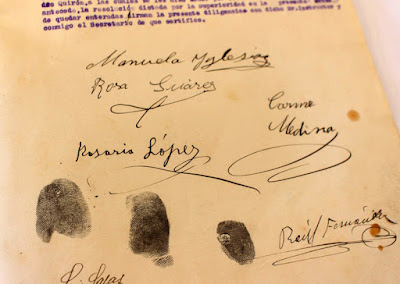 dso Quirón, a las cuales
antecede, la resolución dictada por la superioridad en la presente
de quedar enteradas firman la presente diligencias con dicho Sr. Instructor y
conmigo el Secretario de que certifico.
Manuela Yglesias
Rosa Suáres
Carme
Medina
Rosario López
Raúl Fernández